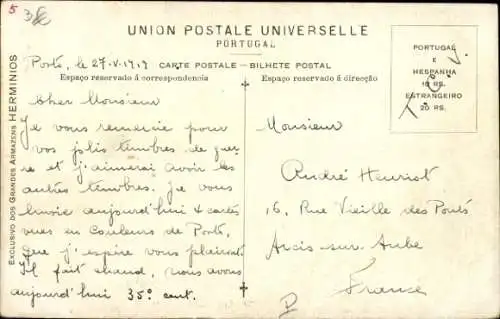 5
UNION POSTALE UNIVERSELLE
PORTUGAL
CARTE POSTALE – BILHETE POSTAL
Espaço reservado á correspondencia
Espaço reservado á direcção
PORTUGAL
E
HESPANHA
10 RS.
ESTRANGEIRO
20 RS.
T. C. J.
EXCLUSIVO DOS GRANDES ARMAZENS HERMINIOS
Porto, le 27-V-1919
Cher Monsieur
Je vous remercie pour
vos jolis timbres de guer
re et j'aimerai avoir les
autres timbres. Je vous
aujourd'hui 4 cartes
vues en couleurs de Porto,
que j'espère vous plairont.
Il fait chaud, nous avons
aujourd'hui 35º cent.
Monsieur
André Heuriot
16, Rue Vieille des Ponts
Arcis-sur-Aube
France